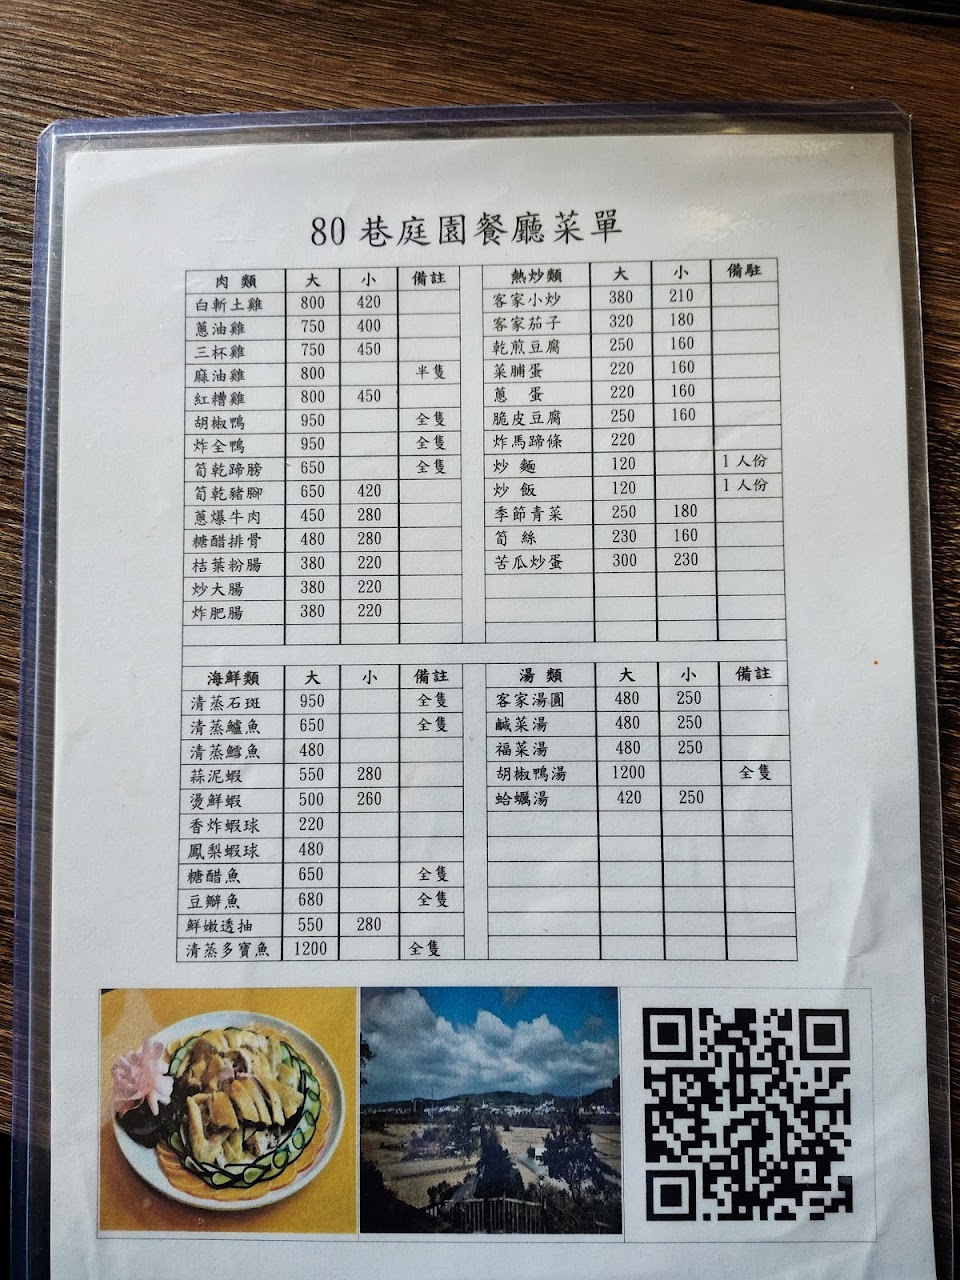 80 巷庭園餐廳菜單
肉 類 大 小 備註
白斬土雞 800 420
蔥油雞 750 400
三杯雞 750 450
麻油雞 800 半隻
紅糟雞 800 450
胡椒鴨 950 全隻
炸全鴨 950 全隻
筍乾蹄膀 650 全隻
筍乾豬腳 650 420
蔥爆牛肉 450 280
糖醋排骨 480 280
桔葉粉腸 380 220
炒大腸 380 220
炸肥腸 380 220
熱炒類 大 小 備駐
客家小炒 380 210
客家茄子 320 180
乾煎豆腐 250 160
菜脯蛋 220 160
蔥 蛋 220 160
脆皮豆腐 250 160
炸馬蹄條 220
炒 麵 120 1 人份
炒 飯 120 1 人份
季節青菜 250 180
筍 絲 230 160
苦瓜炒蛋 300 230
海鮮類 大 小 備註
清蒸石斑 950 全隻
清蒸鱸魚 650 全隻
清蒸鱈魚 480
蒜泥蝦 550 280
燙鮮蝦 500 260
香炸蝦球 220
鳳梨蝦球 480
糖醋魚 650 全隻
豆瓣魚 680 全隻
鮮嫩透抽 550 280
清蒸多寶魚 1200 全隻
湯 類 大 小 備註
客家湯圓 480 250
鹹菜湯 480 250
福菜湯 480 250
胡椒鴨湯 1200 全隻
蛤蠣湯 420 250